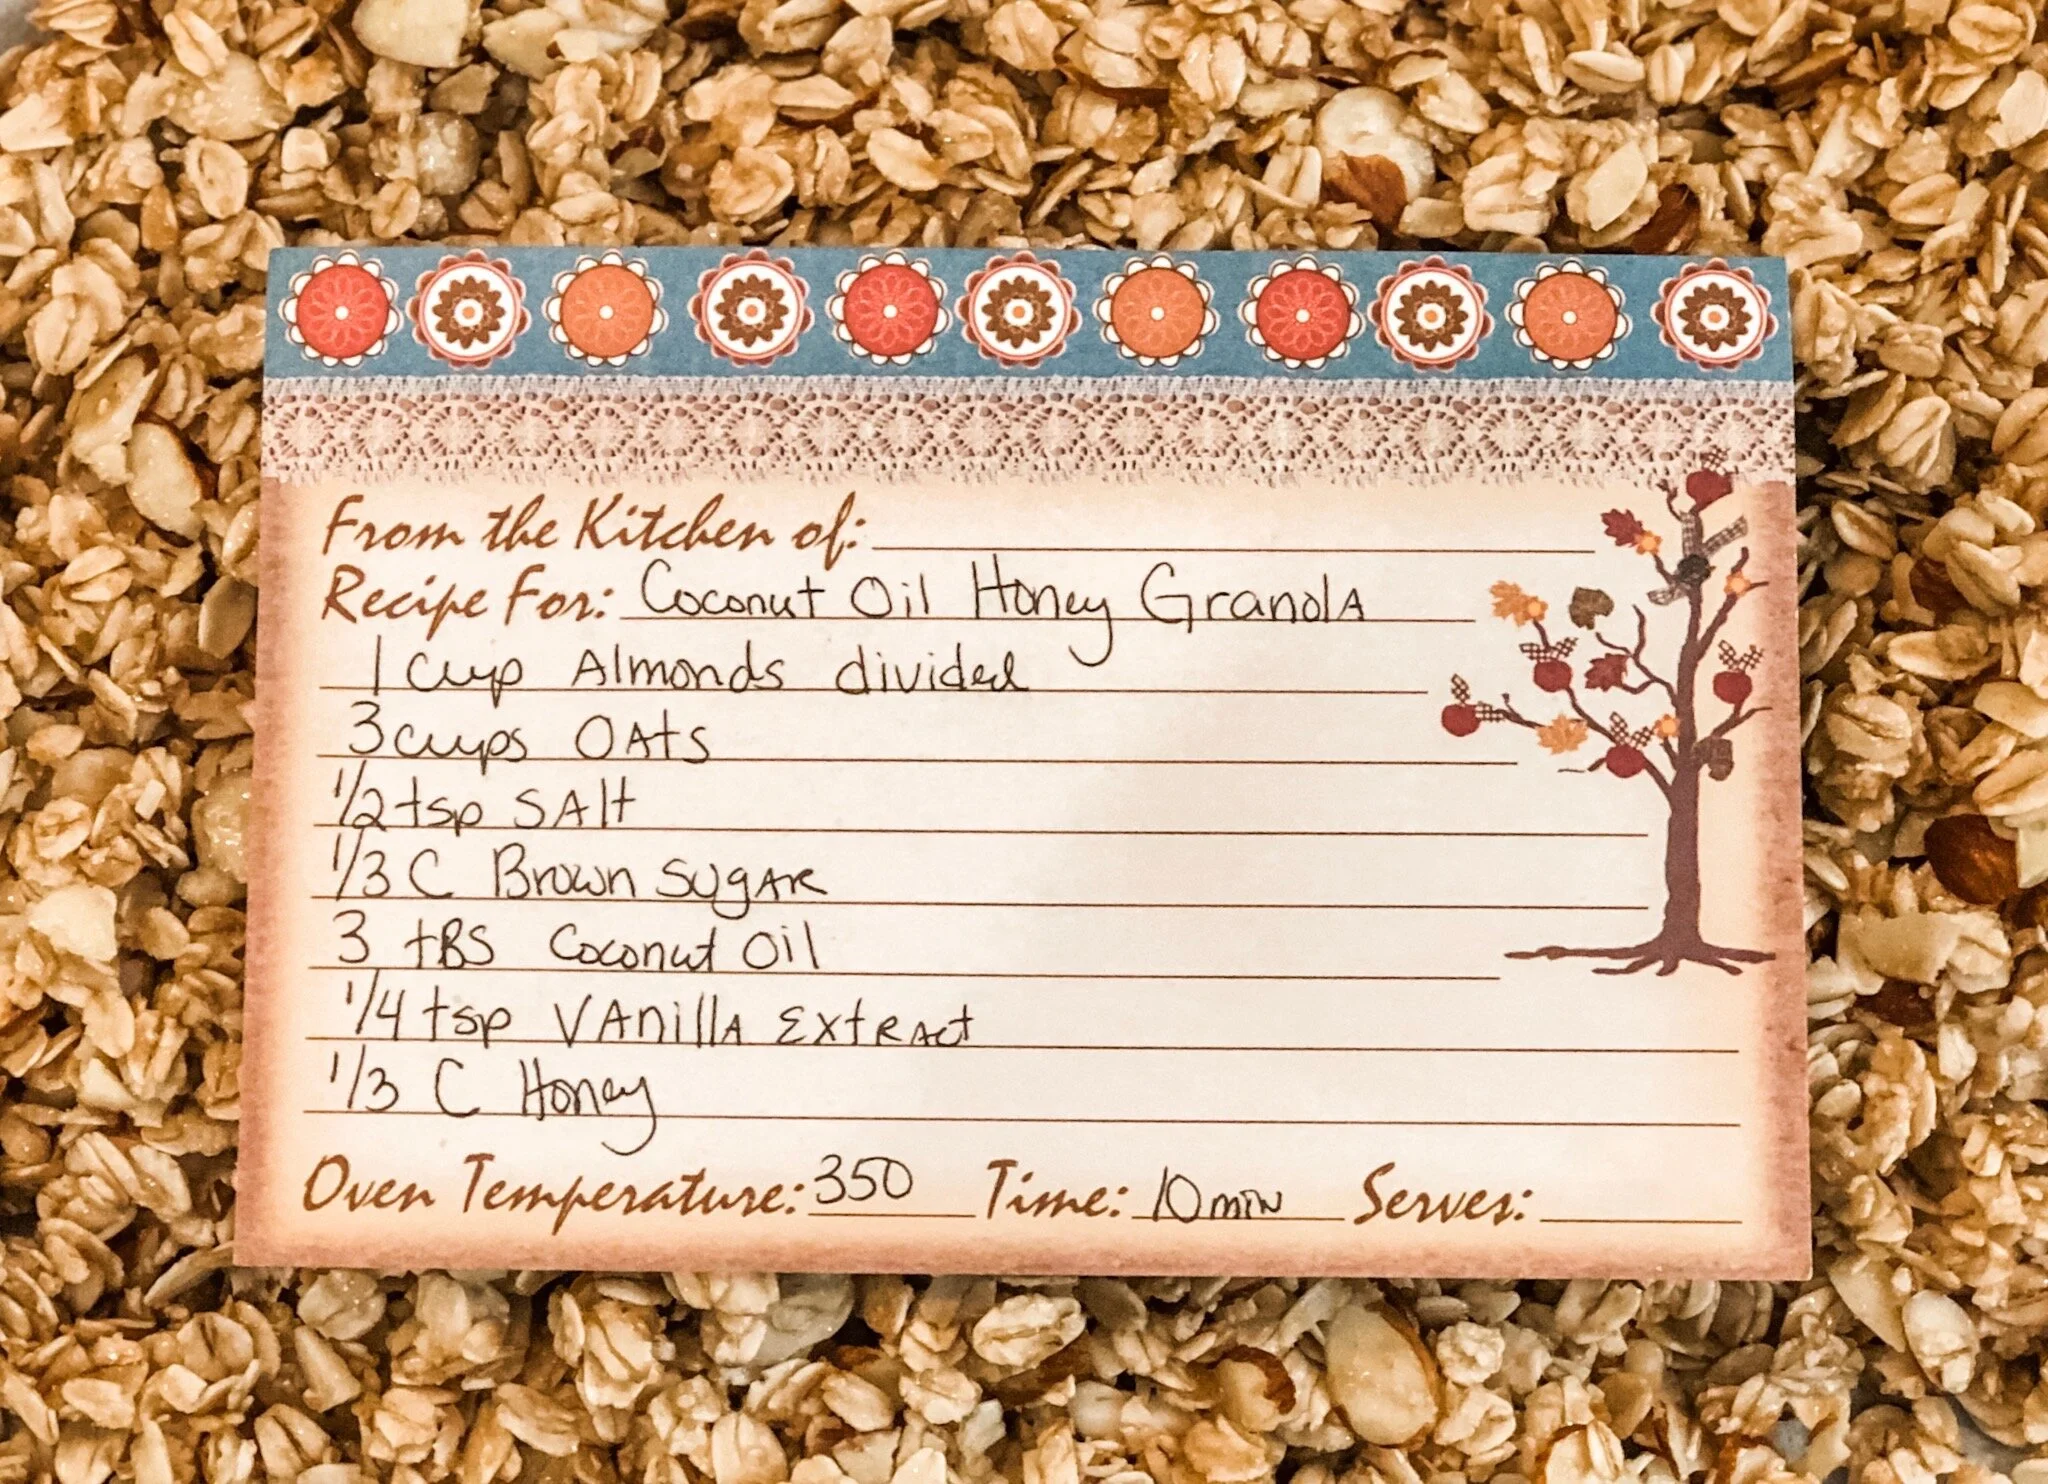 From the Kitchen of:
Recipe For: Coconut Oil Honey Granola
1 cup Almonds divided
3 cups Oats
1/2 tsp Salt
1/3 C Brown Sugar
3 tBS Coconut Oil
1/4 tsp Vanilla Extract
1/3 C Honey
Oven Temperature: 350 Time: 10 min Serves: